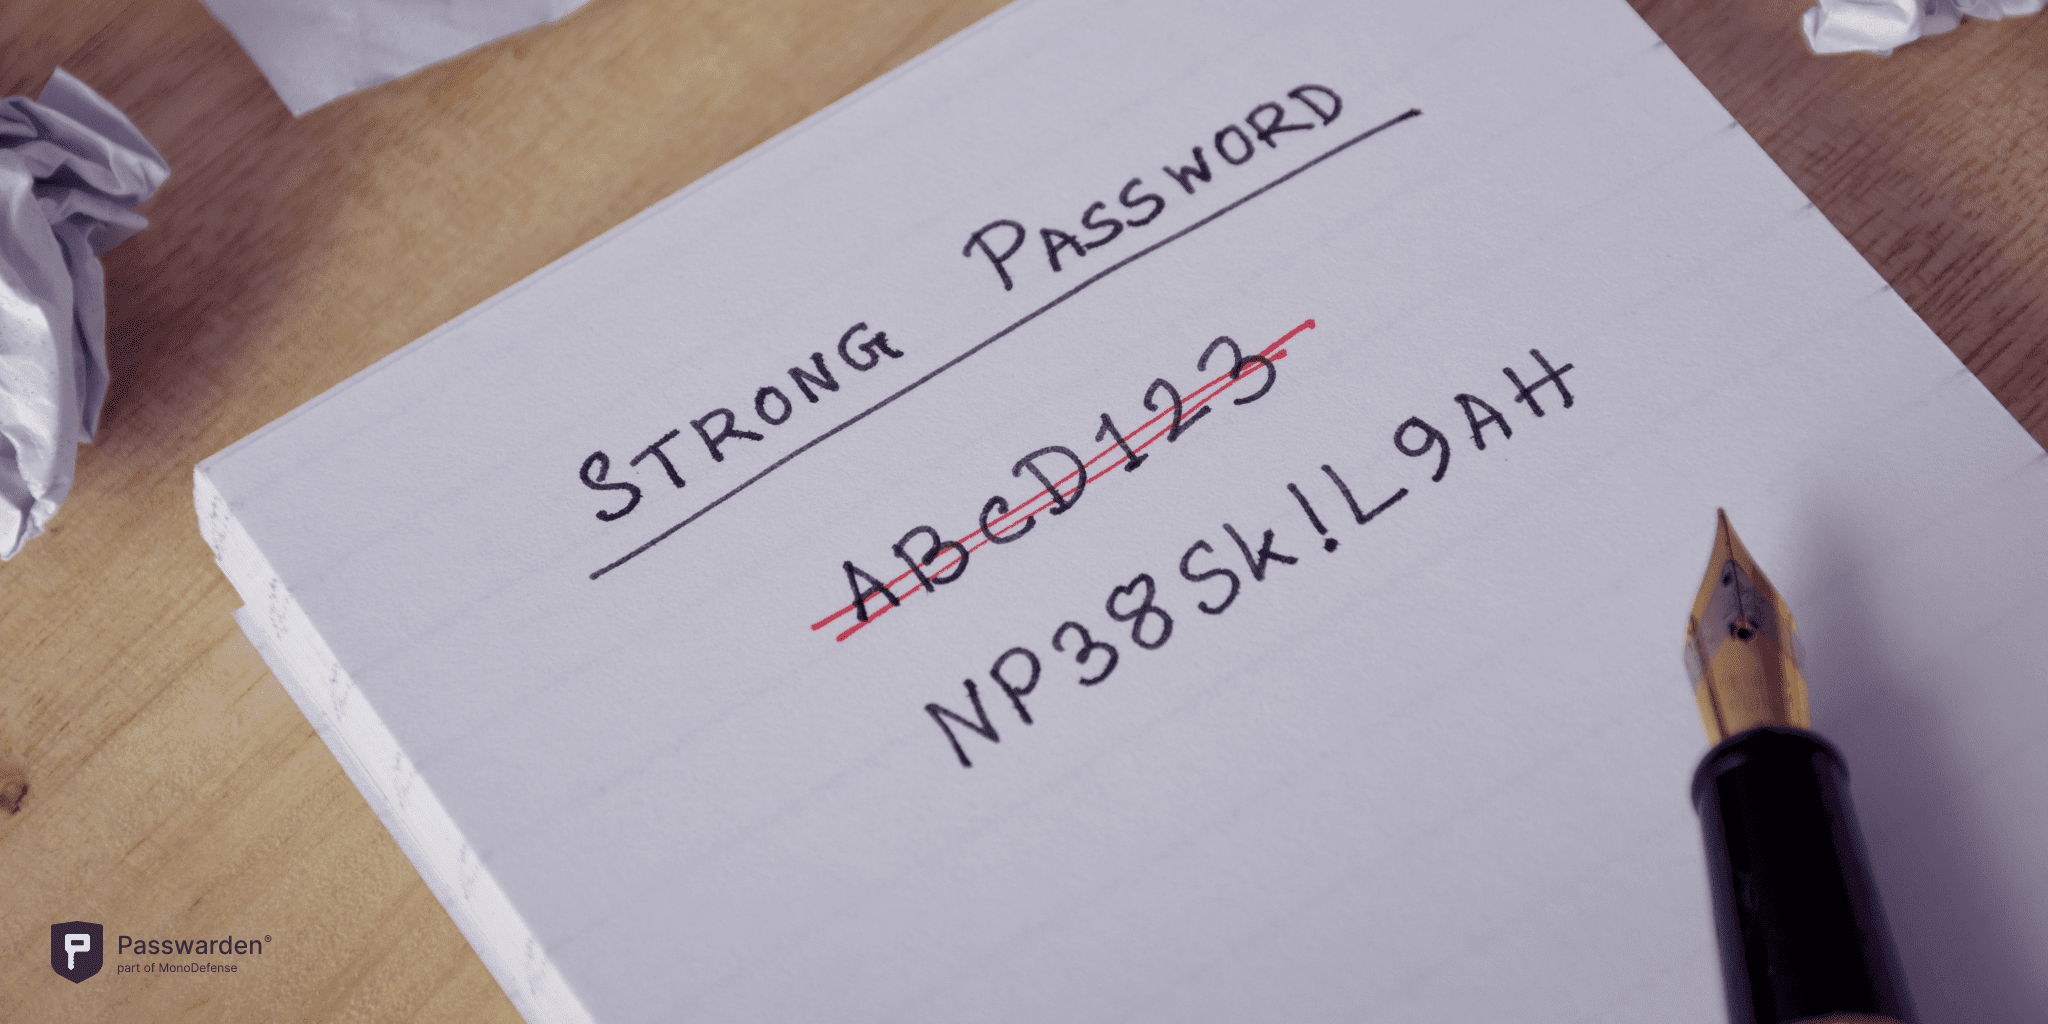 STRONG PASSWORD
ABCD123
NP38Sk!L9AH
Passwarden®
part of MonoDefense